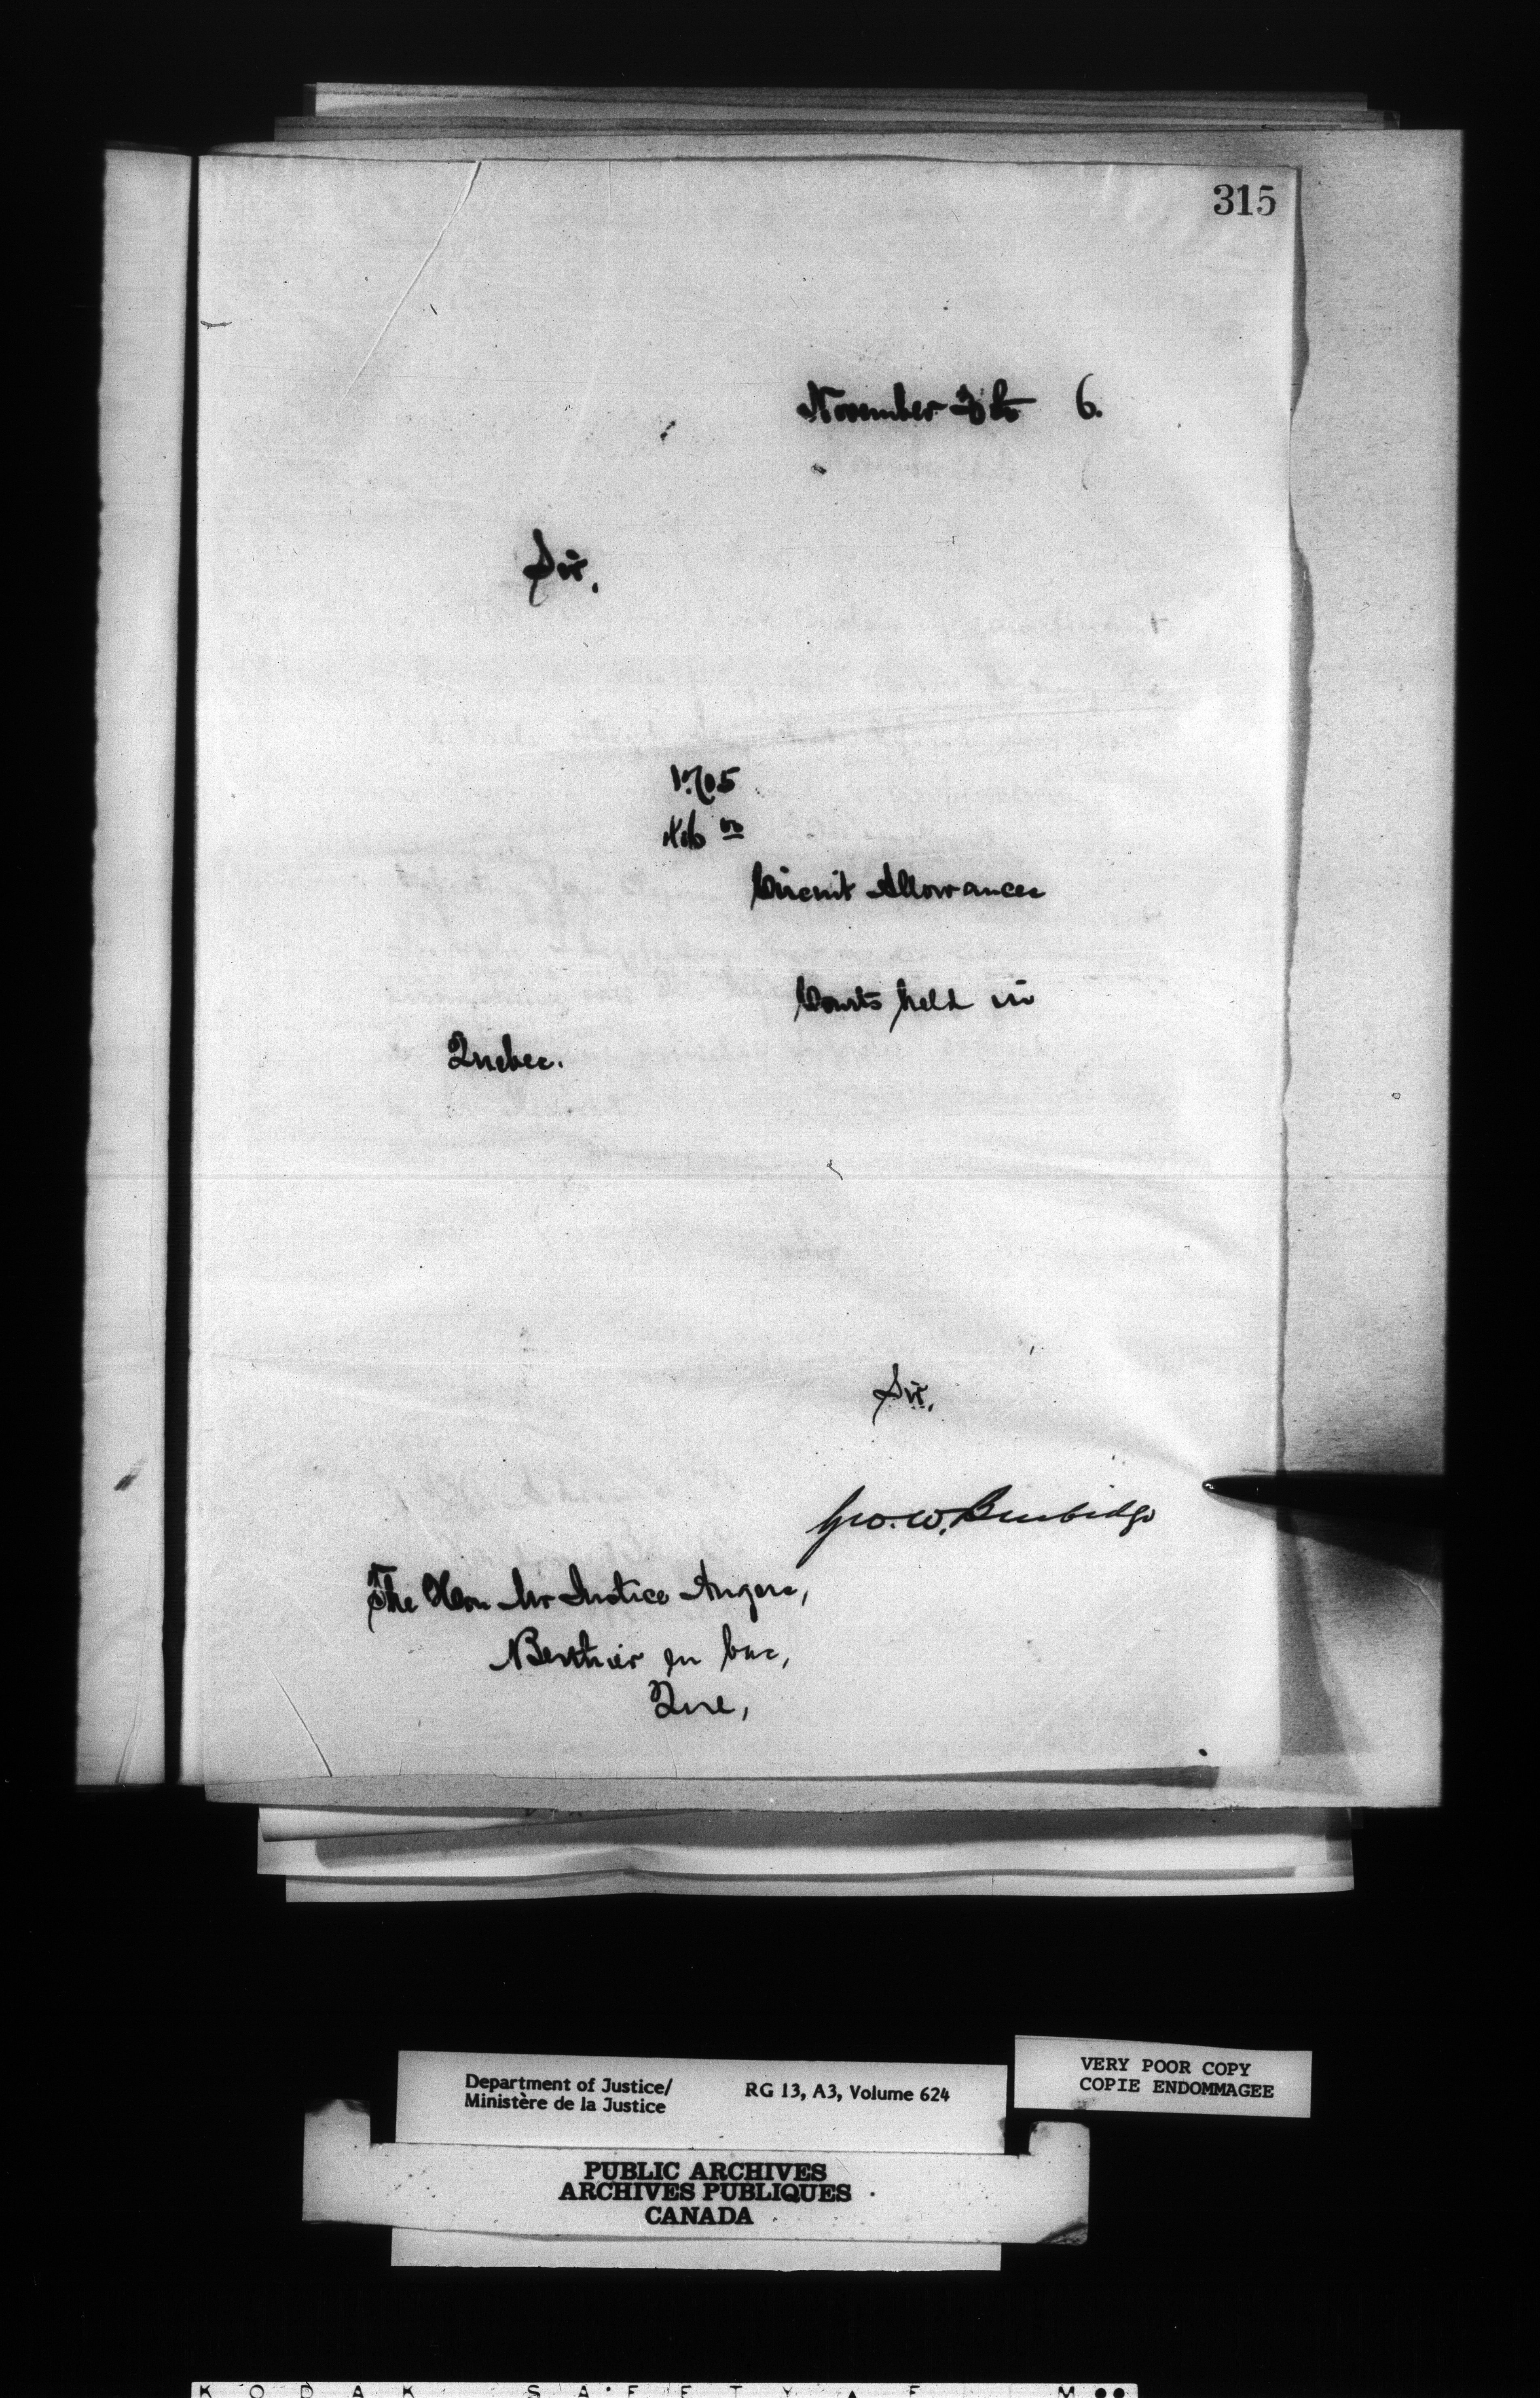 315
November 6.
Sir,
1705
Circuit Allowances
Courts held in
Quebec.
Sir,
Geo. W. Burbidge
The Hon Mr Justice Angers,
Berthier en bas,
Que,
Department of Justice/
Ministère de la Justice
RG 13, A3, Volume 624
VERY POOR COPY
COPIE ENDOMMAGEE
PUBLIC ARCHIVES
ARCHIVES PUBLIQUES
CANADA
KODAK SAFETY